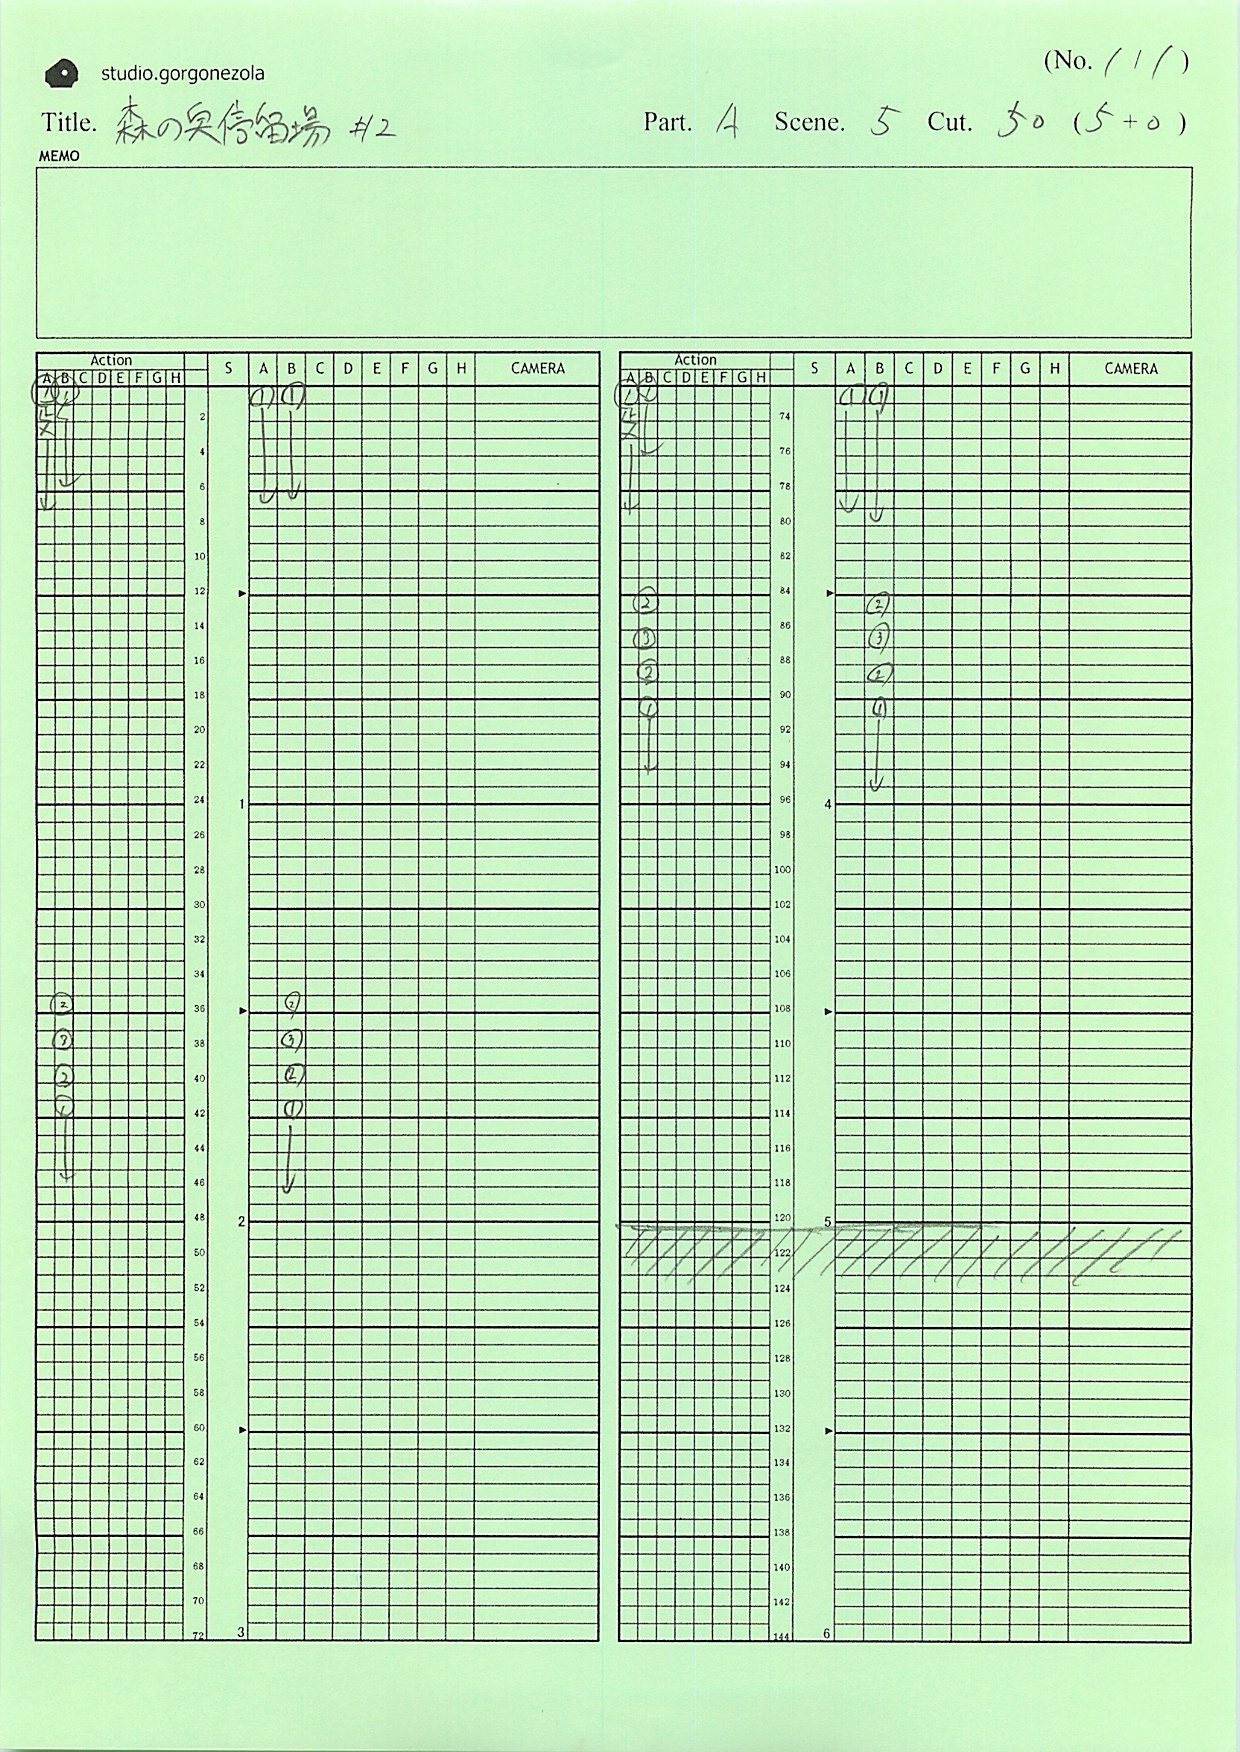 studio.gorgonezola
(No. 1 / 1)
Title. 森の奥停留場 #12
Part. A Scene. 5 Cut. 50 (5+0)
MEMO
Action
S A B C D E F G H CAMERA
A B C D E F G H
① ① ① ①
止
メ
2
4
6
8
10
12
14
16
18
20
22
24 1
26
28
30
32
34
② ②
36
③ ③
38
② ②
40
① ①
42
44
46
48 2
50
52
54
56
58
60
62
64
66
68
70
72 3
Action
S A B C D E F G H CAMERA
A B C D E F G H
① ① ① ①
止
メ
74
76
78
80
82
84
② ②
86
③ ③
88
② ②
90
① ①
92
94
96 4
98
100
102
104
106
108
110
112
114
116
118
120 5
122
124
126
128
130
132
134
136
138
140
142
144 6